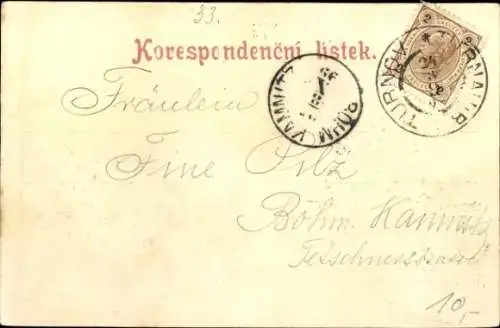 33.
Korespondenční lístek.
2 2
TURNOV TURNAU
BÖHM. KAMNITZ
Fräulein
Fine Pilz
Böhm. Kamnitz
10,-